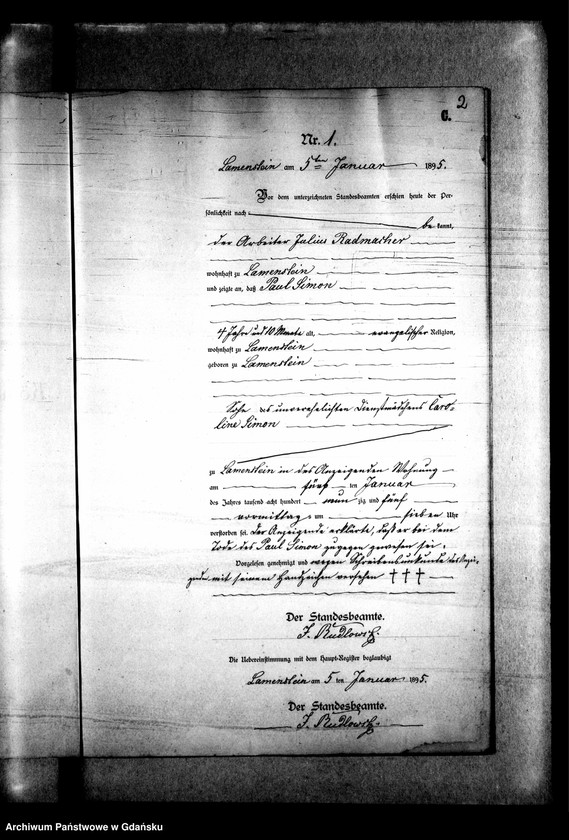 2
C.
Nr. 1.
Lamenstein am 5ten Januar 1895.
Vor dem unterzeichneten Standesbeamten erschien heute der Per-
sönlichkeit nach
be kannt,
der Arbeiter Julius Radmacher
wohnhaft zu Lamenstein
und zeigte an, daß Paul Simon
4 Jahre und 10 Monate alt, evangelischer Religion,
wohnhaft zu Lamenstein
geboren zu Lamenstein
Sohn des unverehelichten Dienstmädchens Caro-
line Simon
zu Lamenstein in des Anzeigenden Wohnung
am fünf ten Januar
des Jahres tausend acht hundert neun zig und fünf
vormittag s um sieben Uhr
verstorben sei. Der Anzeigende erklärte, daß er bei dem
Tode des Paul Simon zugegen gewesen sei.
Vorgelesen, genehmigt und wegen Schreibensunkunde des Anzei-
genden mit seinem Handzeichen versehen † † †
Der Standesbeamte.
Die Uebereinstimmung mit dem Haupt-Register beglaubigt
Lamenstein am 5 ten Januar 1895.
Der Standesbeamte.
Archiwum Państwowe w Gdańsku